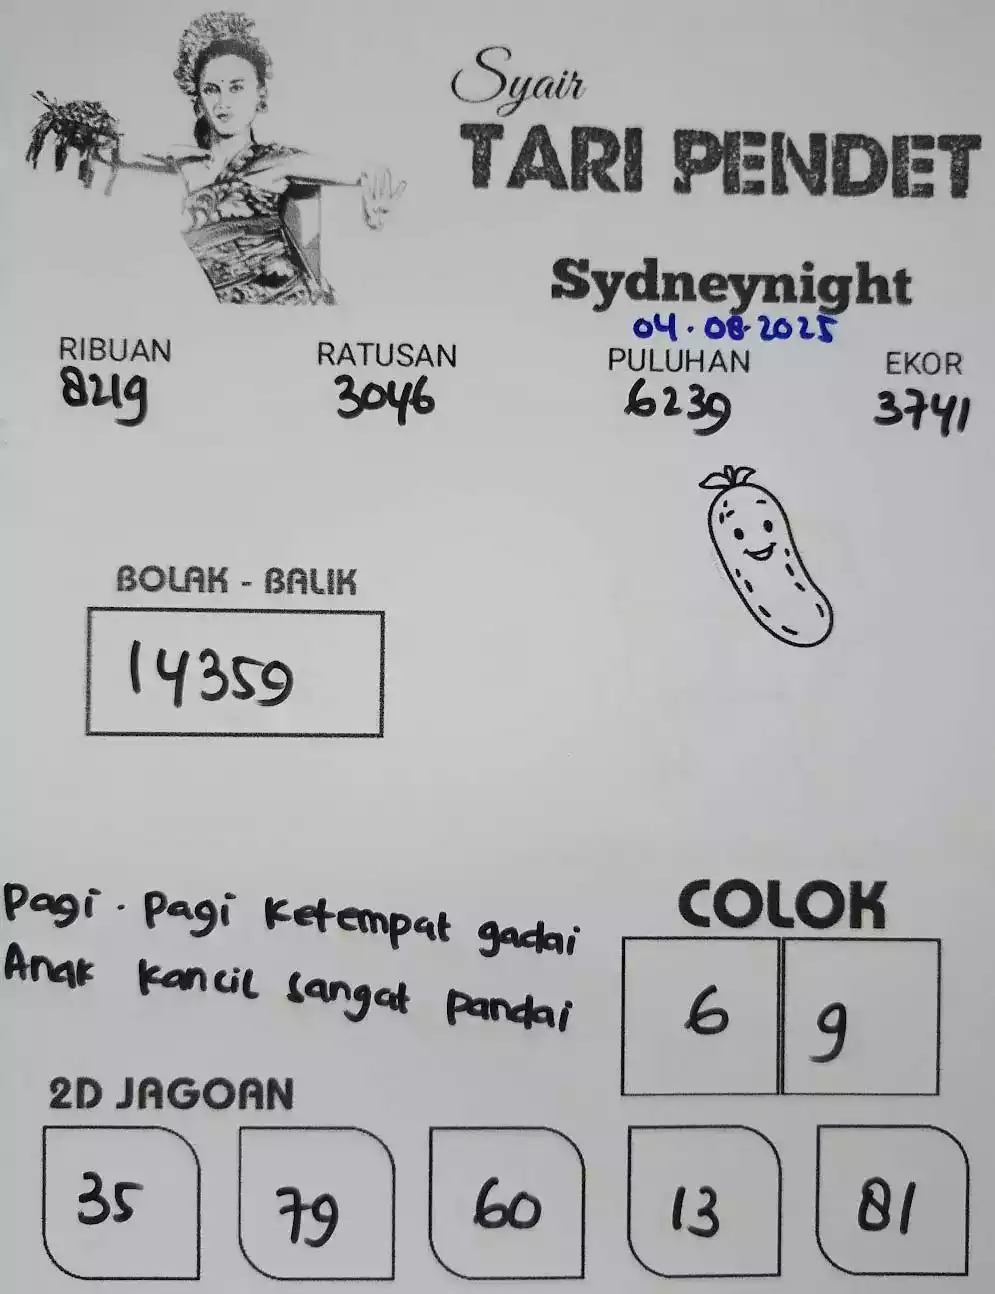 Syair
TARI PENDET
Sydneynight
04.08.2025
RIBUAN RATUSAN PULUHAN EKOR
8219 3046 6239 3741
BOLAK - BALIK
14359
Pagi. Pagi Ketempat gadai
Anak kancil sangat pandai
COLOK
6 9
2D JAGOAN
35 79 60 13 81